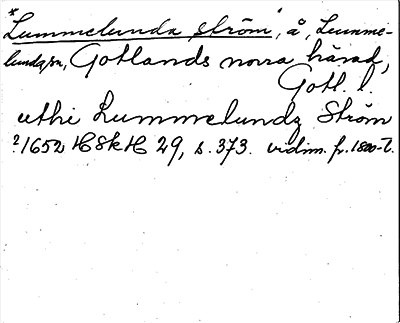 *Lummelunda ström*, å, Lumme-
lunda sn, Gotlands norra härad,
Gotl. l.
uthi Lummelundz Ström
?1652 HSkH 29, s. 373. vidim. fr. 1800-t.